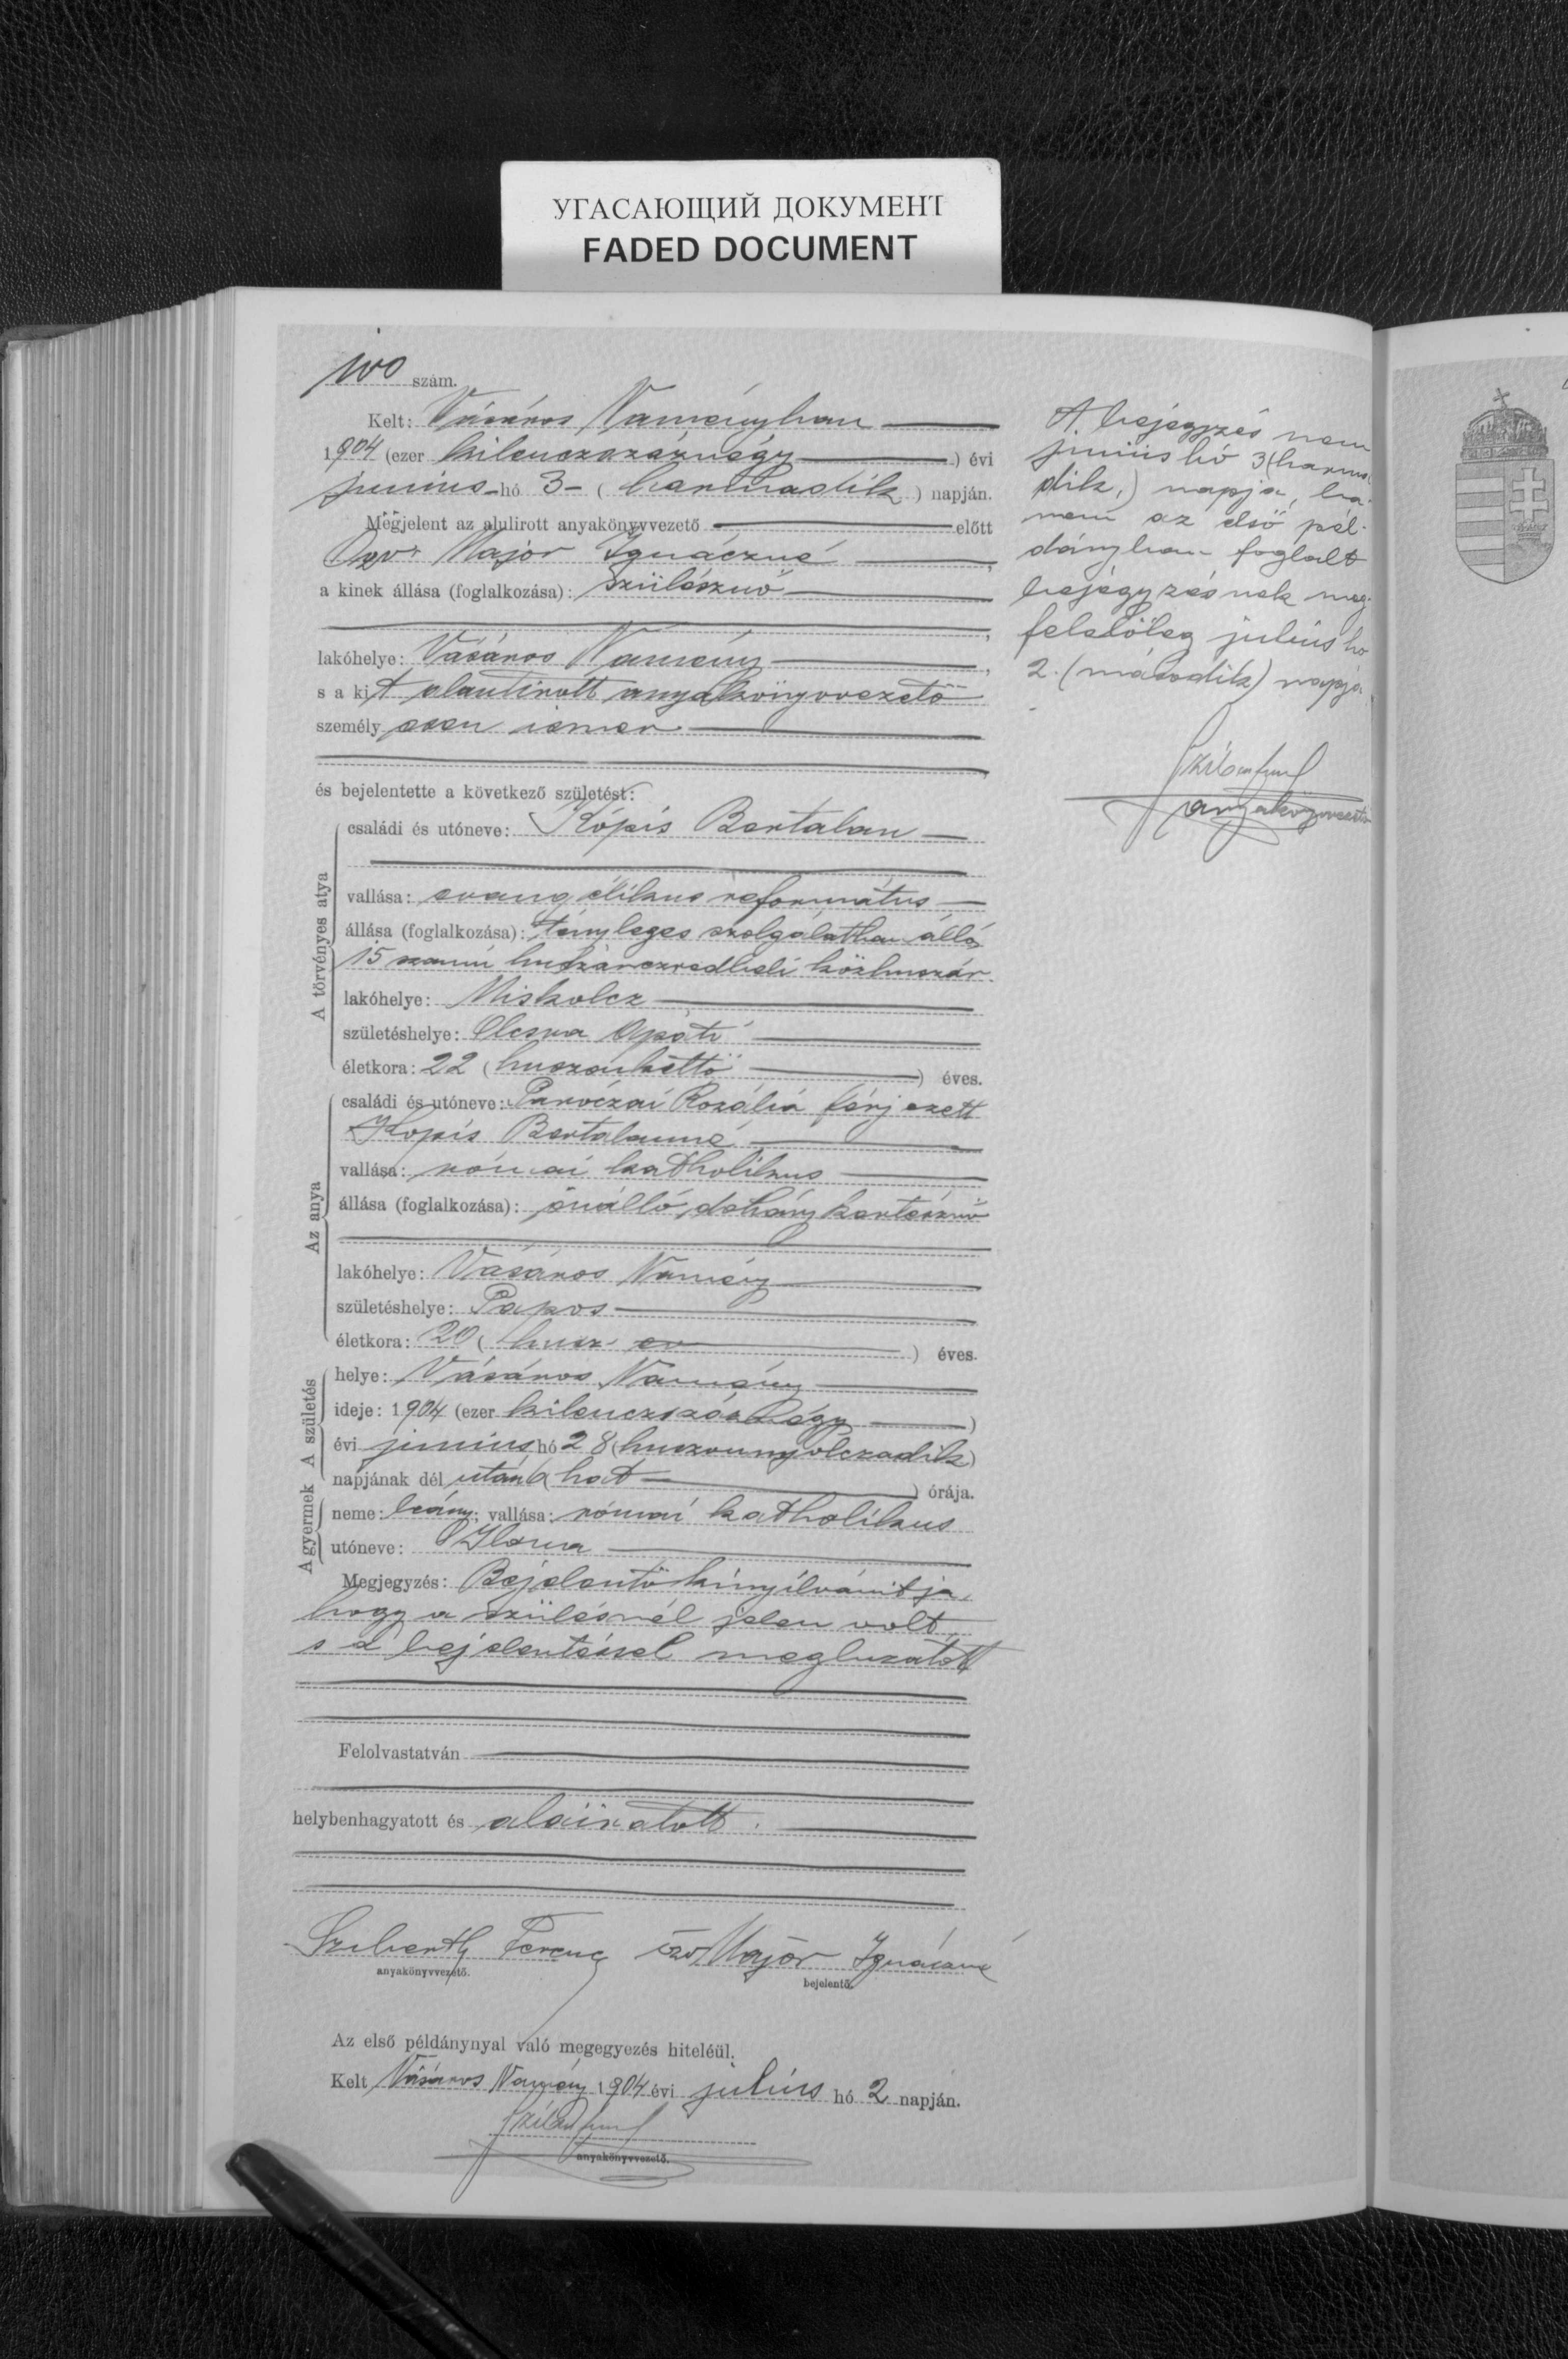 УГАСАЮЩИЙ ДОКУМЕНТ
FADED DOCUMENT
100 szám.
Kelt: Vásáros Naményban
1904 (ezer kilenczszáznégy) évi
junius hó 3 - (harmadik) napján.
Megjelent az alulirott anyakönyvvezető előtt
Özv. Major Ignáczné,
a kinek állása (foglalkozása): szülésznő
lakóhelye: Vásáros Namény,
s a kit alantirott anyakönyvvezető
személyesen ismer
és bejelentette a következő születést:
A törvényes atya
családi és utóneve: Kópis Bertalan
vallása: evangélikus református
állása (foglalkozása): tényleges szolgálatban álló
15 számú huszárezredbeli közhuszár
lakóhelye: Miskolcz
születéshelye: Olcsva Apáti
életkora: 22 (huszonkettő) éves.
Az anya
családi és utóneve: Paróczai Rozália férjezett
Kopis Bertalanné
vallása: római katholikus
állása (foglalkozása): önálló dohány kertésznő
lakóhelye: Vásáros Namény
születéshelye: Papos
életkora: 20 (husz) éves.
A születés
helye: Vásáros Namény
ideje: 1904 (ezer kilenczszáznégy)
évi junius hó 28 (huszonnyolczadik)
napjának dél után 6 (hat) órája.
A gyermek
neme: leány; vallása: római katholikus
utóneve: Ilona
Megjegyzés: Bejelentő kinyilvánitja,
hogy a szülésnél jelen volt,
s a bejelentéssel megbizatott
Felolvastatván
helybenhagyatott és aláiratott.
Ferenc özv Major Ignácné
anyakönyvvezető. bejelentő.
Az első példánynyal való megegyezés hiteléül.
Kelt Vásáros Namény 1904 évi július hó 2 napján.
anyakönyvvezető.
A bejegyzés nem
junius hó 3 (harma
dik,) napja, ha-
nem az első pél-
dányban foglalt
bejegyzésnek meg-
felelőleg július hó
2. (második) napja
anyakönyvvezető